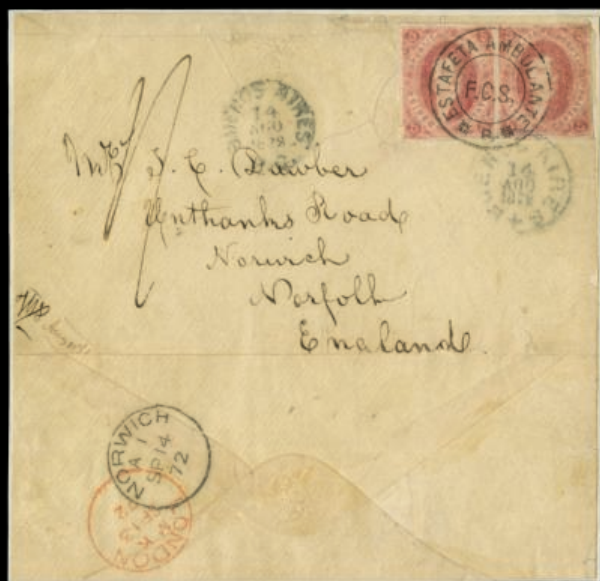 ESTAFETA AMBULANTE
F.C.S.
BUENOS AIRES
14
AGO
1872
BUENOS AIRES
14
AGO
1872
Mrs J. C. Dawber
Unthanks Road
Norwich
Norfolk
England.
NORWICH
A 1
SP 14
72
LONDON